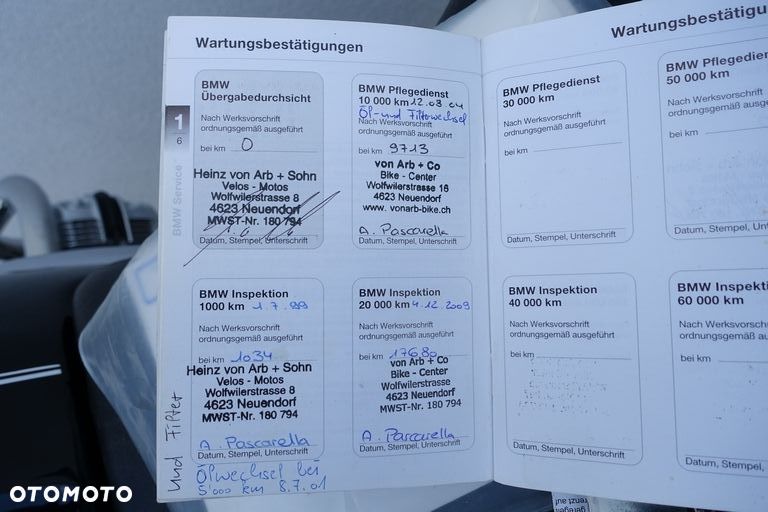 Wartungsbestätigungen
BMW
Übergabedurchsicht
Nach Werksvorschrift
ordnungsgemäß ausgeführt
bei km 0
Heinz von Arb + Sohn
Velos - Motos
Wolfwilerstrasse 8
4623 Neuendorf
MWST-Nr. 180 794
Datum, Stempel, Unterschrift
BMW Pflegedienst
10 000 km 12.03.04
Öl- und Filterwechsel
Nach Werksvorschrift
ordnungsgemäß ausgeführt
bei km 9713
von Arb + Co
Bike - Center
Wolfwilerstrasse 16
4623 Neuendorf
www. vonarb-bike.ch
A. Pascarella
Datum, Stempel, Unterschrift
1
6
BMW Service
BMW Inspektion
1000 km 1.7.99
Nach Werksvorschrift
ordnungsgemäß ausgeführt
bei km 1034
Heinz von Arb + Sohn
Velos - Motos
Wolfwilerstrasse 8
4623 Neuendorf
MWST-Nr. 180 794
A. Pascarella
Datum, Stempel, Unterschrift
Ölwechsel bei
5'000 km 8.7.01
und Filter
BMW Inspektion
20 000 km 4.12.2009
Nach Werksvorschrift
ordnungsgemäß ausgeführt
bei km 17680
von Arb + Co
Bike - Center
Wolfwilerstrasse
4623 Neuendorf
MWST-Nr. 180 794
A. Pascarella
Datum, Stempel, Unterschrift
Wartungsbestätigu
BMW Pflegedienst
30 000 km
Nach Werksvorschrift
ordnungsgemäß ausgeführt
bei km
Datum, Stempel, Unterschrift
BMW Pflegedie
50 000 km
Nach Werksvorschrift
ordnungsgemäß ausgef
bei km
Datum, Stempel, Unte
BMW Inspektion
40 000 km
Nach Werksvorschrift
ordnungsgemäß ausgeführt
bei km
Datum, Stempel, Unterschrift
BMW Inspekti
60 000 km
Nach Werksvorsch
ordnungsgemäß au
bei km
Datum, Stempel,
OTOMOTO